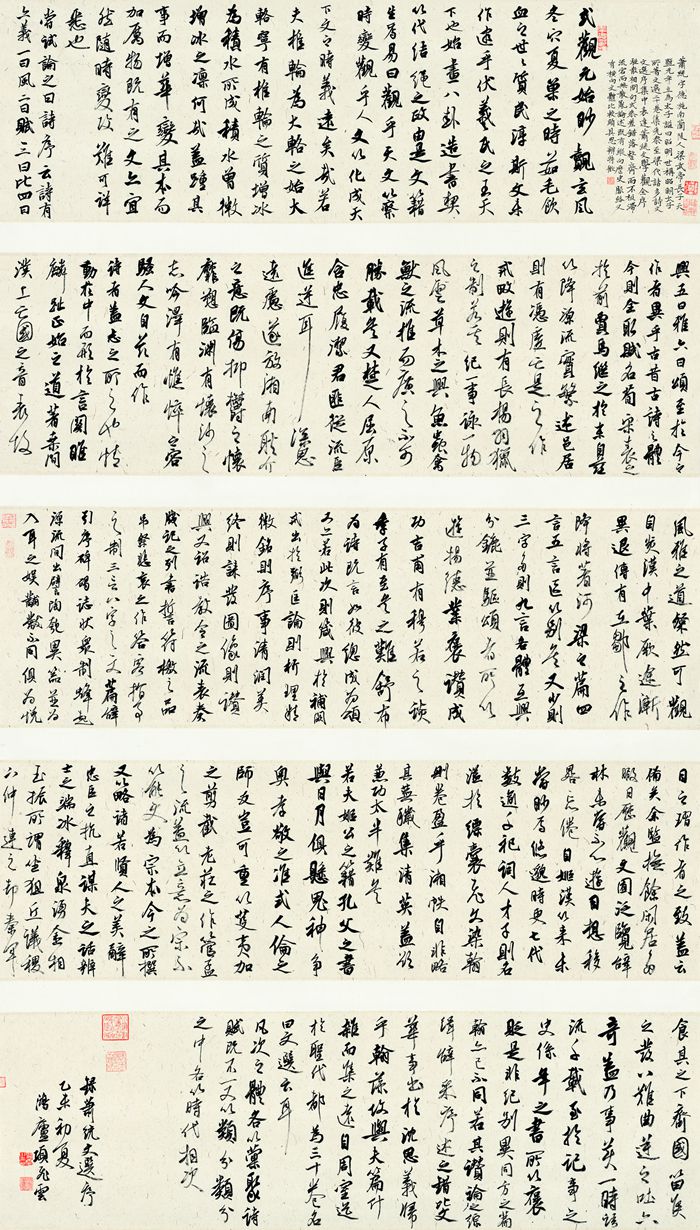 式觀元始眇覿玄風
冬穴夏巢之時茹毛飲
血之世世質民淳斯文未
作逮乎伏羲氏之王天
下也始畫八卦造書契
以代結繩之政由是文籍
生焉易曰觀乎天文以察
時變觀乎人文以化成天
下文之時義遠矣哉若
夫椎輪為大輅之始大
輅寧有椎輪之質增冰
為積水所成積水曾微
增冰之凜何哉蓋踵其
事而增華變其本而
加厲物既有之文亦宜
然隨時變改難可詳
悉也
嘗試論之曰詩序云詩有
六義一曰風二曰賦三曰比四曰
興五曰雅六曰頌至於今之
作者異乎古昔古詩之體
今則全取賦名荀宋表之
於前賈馬繼之於末自茲
以降源流實繁述邑居
則有憑虛亡是之作
戒畋遊則有長楊羽獵
之制若其紀一事詠一物
風雲草木之興魚蟲禽
獸之流推而廣之不可
勝載矣又楚人屈原
含忠履潔君匪從流臣
進逆耳深思
遠慮遂放湘南耿介
之意既傷抑鬱之懷
靡愬臨淵有懷沙之
志吟澤有憔悴之容
騷人文自茲而作
詩者蓋志之所之也情
動於中而形於言關雎
麟趾正始之道著桑間
濮上亡國之音表故
風雅之道粲然可觀
自炎漢中葉厥途漸
異退傅有在鄒之作
降將著河梁之篇四
言五言區以別矣又少則
三字多則九言各體互興
分鑣並驅頌者所以
遊揚德業褒讚成
功吉甫有穆若之談
季子有至矣之歎舒布
為詩既言如彼總成為頌
又亦若此次則箴興於補闕
戒出於弼匡論則析理精
微銘則序事清潤美
終則誄發圖像則讚
興又詔誥教令之流表奏
牋記之列書誓符檄之品
弔祭悲哀之作答客指事
之制三言八字之文篇辭
引序碑碣誌狀眾制鋒起
源流間出譬陶匏異器並為
入耳之娛黼黻不同俱為悅
目之作者之致蓋云
備矣余監撫餘閑居多
暇日歷觀文囿泛覽辭
林未嘗不心遊目想移
晷忘倦自姬漢以來
眇焉悠邈時更七代
數逾千祀詞人才子則名
溢於縹囊飛文染翰
則卷盈乎緗帙自非略
其蕪穢集清英蓋欲
兼功太半難矣
若夫姬公之籍孔父之書
與日月俱懸鬼神爭
奧孝敬之准式人倫之
師友豈可重以芟夷加
之剪截老莊之作管孟
之流蓋以立意為宗不
以能文為本今之所撰
又以略諸若賢人之美辭
忠臣之抗直謀夫之話辨
士之端冰釋泉湧金相
玉振所謂坐狙丘議稷
下仲連之卻秦軍
食其之下齊國留侯
之發八難曲逆之吐六
奇蓋乃事美一時語
流千載至於記事之
史係年之書所以褒
貶是非紀別異同方之篇
翰亦已不同若其讚論之綜
緝辭采序述之錯比文
華事出於沈思義歸
乎翰藻故與夫篇什
雜而集之遠自周室迄
於聖代都為三十卷名
曰文選云耳
凡次文之體各以彙聚詩
賦既不一又以類分類分
之中各以時代相次
錄蕭統文選序
乙未初夏